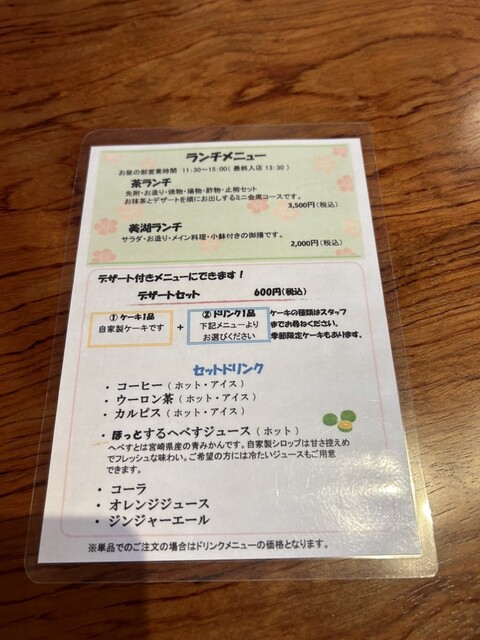 ランチメニュー
お昼の部営業時間 11:30~15:00( 最終入店 13:30 )
茶ランチ
先附・お造り・焼物・揚物・酢物・止椀セット
お抹茶とデザートを順にお出しするミニ会席コースです。
3,500円(税込)
美湖ランチ
サラダ・お造り・メイン料理・小鉢付きの御膳です。
2,000円(税込)
デザート付きメニューにできます!
デザートセット 600円(税込)
① ケーキ1品
自家製ケーキです
+
② ドリンク1品
下記メニューより
お選びください
ケーキの種類はスタッフ
までお尋ねください。
季節限定ケーキもあります。
セットドリンク
・ コーヒー ( ホット・アイス )
・ ウーロン茶 ( ホット・アイス )
・ カルピス ( ホット・アイス )
・ ほっとするへべすジュース ( ホット )
へべすとは宮崎県産の青みかんです。自家製シロップは甘さ控えめ
でフレッシュな味わい。ご希望の方には冷たいジュースもご用意
できます。
・ コーラ
・ オレンジジュース
・ ジンジャーエール
※単品でのご注文の場合はドリンクメニューの価格となります。